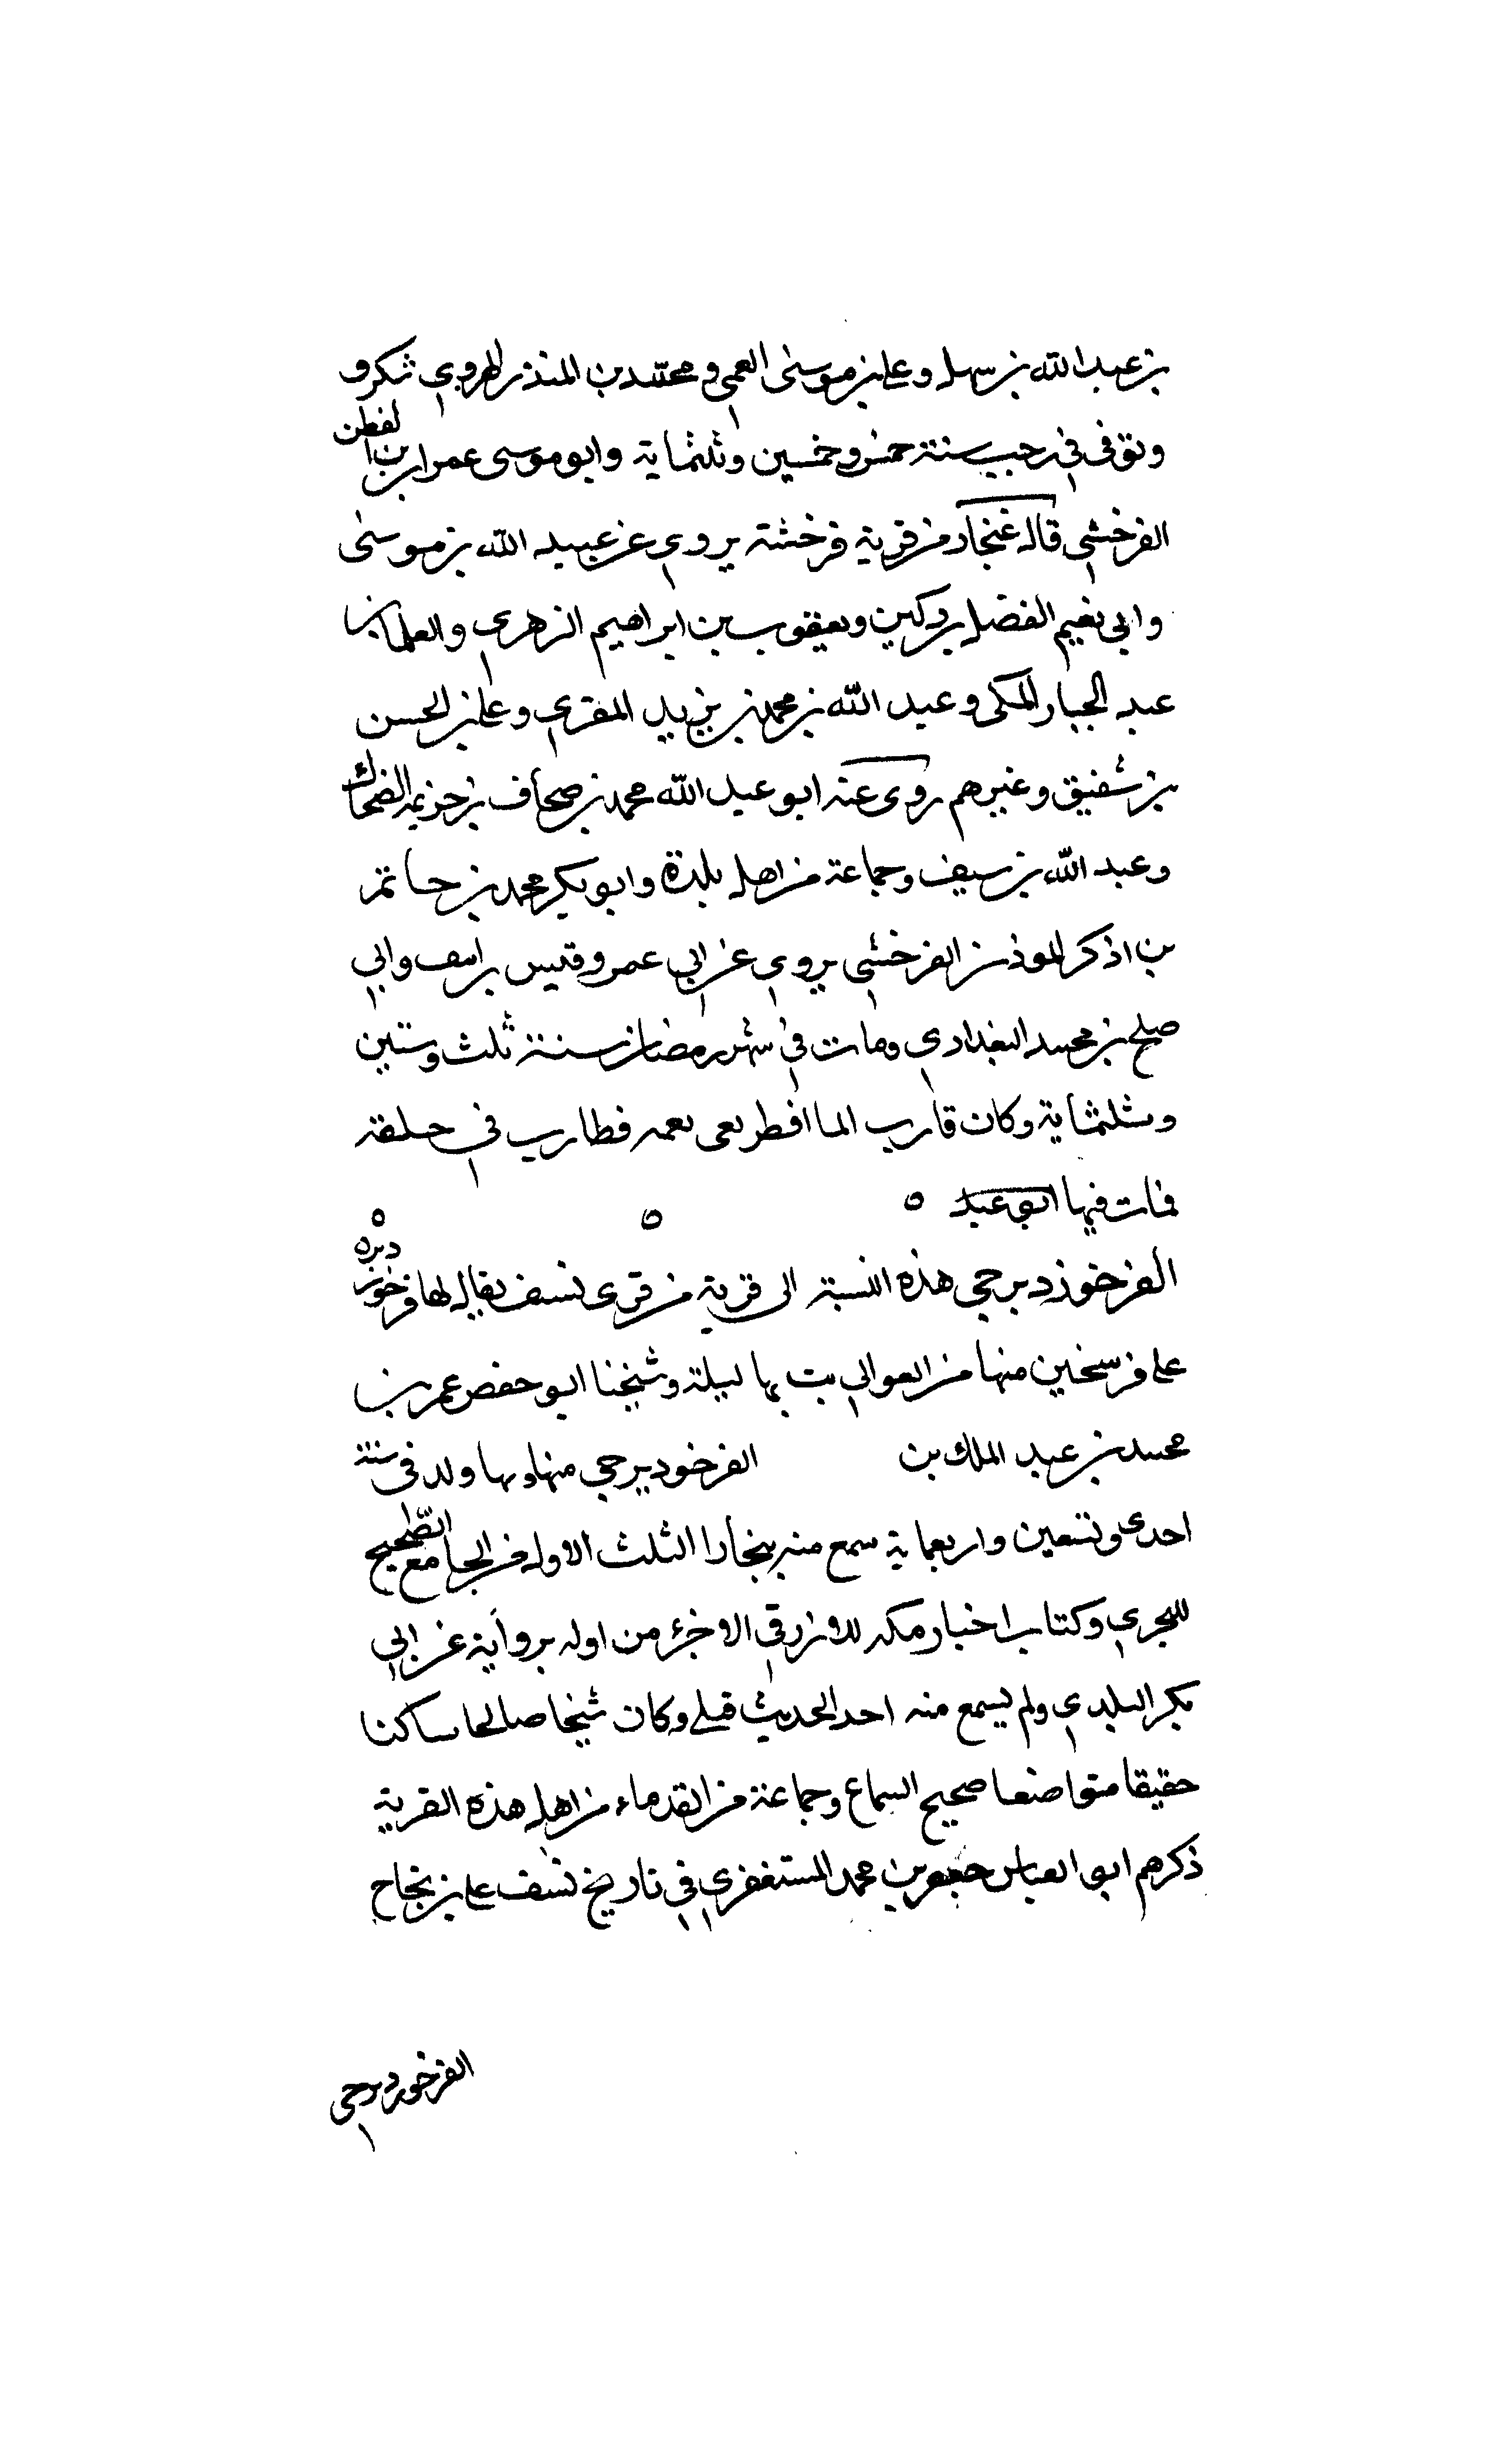 بن عبد الله بن سهل وعلي بن موسى القمي ومحمد بن المنذر الهروي شكر و
وتوفي في رجب سنة خمس وخمسين وثلثماية وابو موسى عمران بن القطن
الفرخشي قال غنجار من قرية فرخشه يروي عن عبيد الله بن موسى
وابي نعيم الفضل بن دكين ويعقوب بن ابراهيم الزهري والعلا بن
عبد الجبار المكي وعبد الله بن محمد بن يزيد المقري وعلي بن الحسن
بن شقيق وغيرهم روى عنه ابو عبد الله محمد بن صحاف بن خزيمه الضحاك
وعبد الله بن سيف وجماعة من اهل بلده وابو بكر محمد بن حاتم
بن اذكر الموذن الفرخشي يروي عن ابي عمرو قيس بن انيف وابي
صلح بن محمد البغدادي ومات في شهر رمضان سنة ثلث وستين
وثلثماية وكان قارب الما افطر فطارت في حلقه
فمات فيها ابو عبد ٥
الفرخوزديرجي هذه النسبة الى قرية من قرى نسف يقال لها فرخوزديزه
على فرسخين منها من العوالي بت بها ليلة وشيخنا ابو حفص عمر بن
محمد بن عبد الملك بن الفرخوديرجي منها وبها ولد في سنة
احدى وتسعين واربعماية سمع منه بنجارا الثلث الاول من الجامع الصحيح
للبجري وكتاب اخبار مكه للازرقي الا جزء من اوله برواية عن ابي
بكر البلدي ولم يسمع منه احد الحديث قبلي وكان شيخا صالحا ساكنا
حقيقا متواضعا صحيح السماع وجماعة من القدماء من اهل هذه القرية
ذكرهم ابو العباس جعفر بن محمد المستغفري في تاريخ نسف علي بن نجاح
الفرخوردىرحى